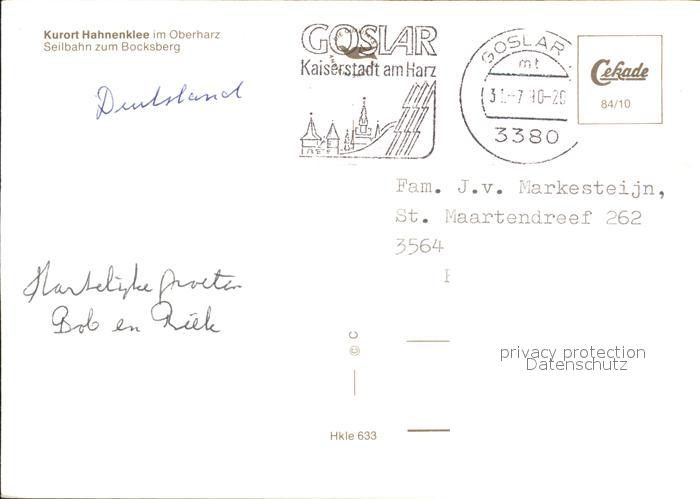 Kurort Hahnenklee im Oberharz
Seilbahn zum Bocksberg
GOSLAR
Kaiserstadt am Harz
GOSLAR
mt
-7 90-20
3380
Cekade
84/10
Deutsland
Fam. J.v. Markesteijn,
St. Maartendreef 262
3564
Hartelijke groeten
Bob en Riek
© C
privacy protection
Datenschutz
Hkle 633